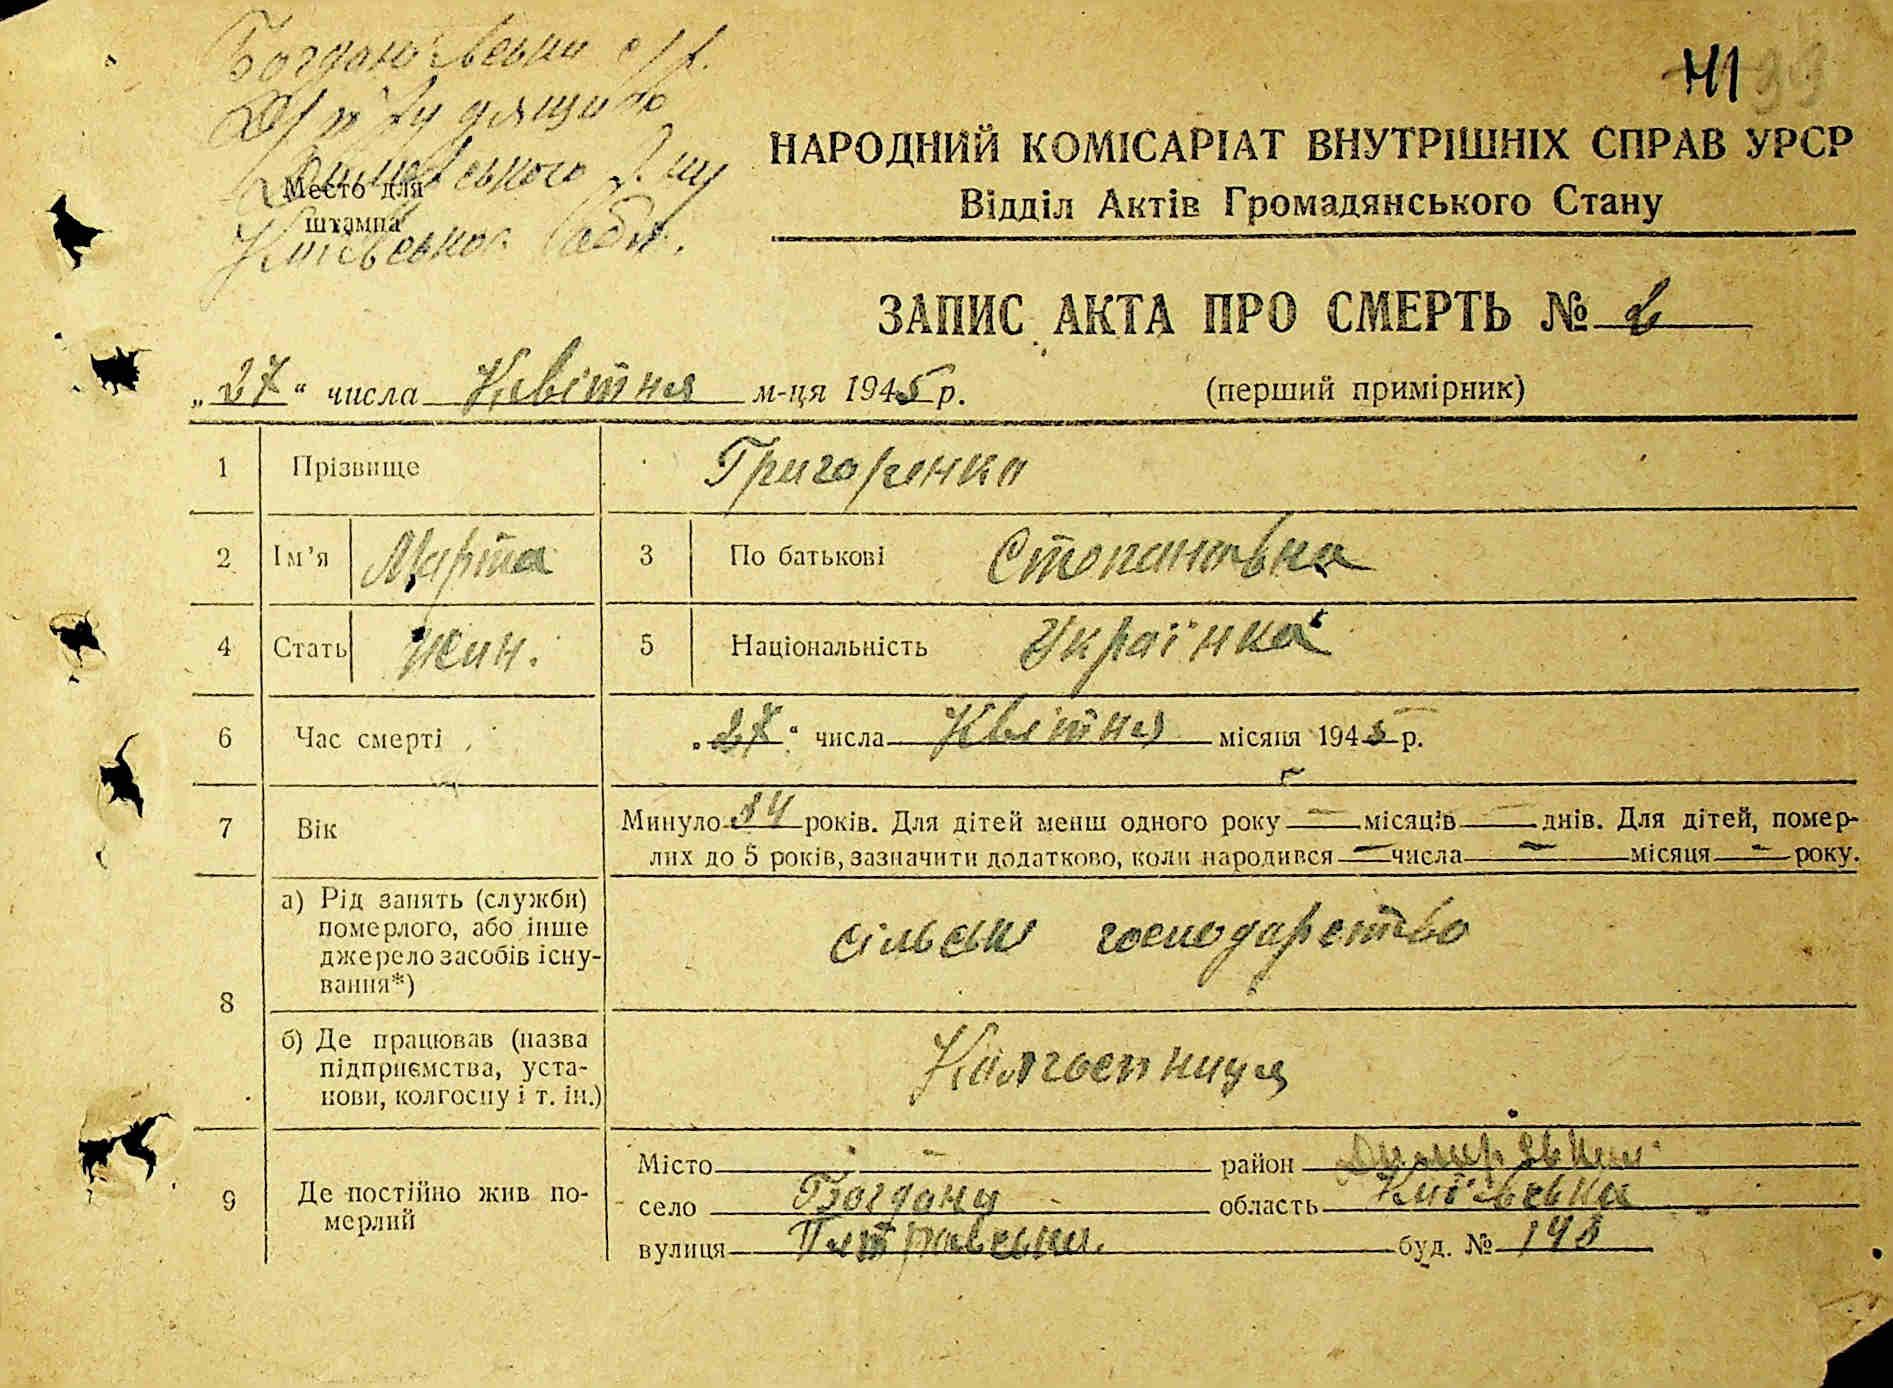 Богданівська с/р.
Димерського р-ну
Место для
штампа
Київської обл.
41
НАРОДНИЙ КОМІСАРІАТ ВНУТРІШНІХ СПРАВ УРСР
Відділ Актів Громадянського Стану
ЗАПИС АКТА ПРО СМЕРТЬ №
„27“ числа Квітня м-ця 1945 р.
(перший примірник)
1 Прізвище Григоренко
2 Ім’я Марта 3 По батькові Степановна
4 Стать жін. 5 Національність Українка
6 Час смерті „27“ числа Квітня місяця 1945 р.
7 Вік Минуло 84 років. Для дітей менш одного року — місяців — днів. Для дітей, помер-
лих до 5 років, зазначити додатково, коли народився — числа — місяця — року.
8 а) Рід занять (служби)
померлого, або інше
джерело засобів існу-
вання*)
сільське господарство
б) Де працював (назва
підприємства, уста-
нови, колгоспу і т. ін.)
Колгоспниця
9 Де постійно жив по-
мерлий
Місто — район Димерський
село Богдани область Київська
вулиця Петровська буд. № 148